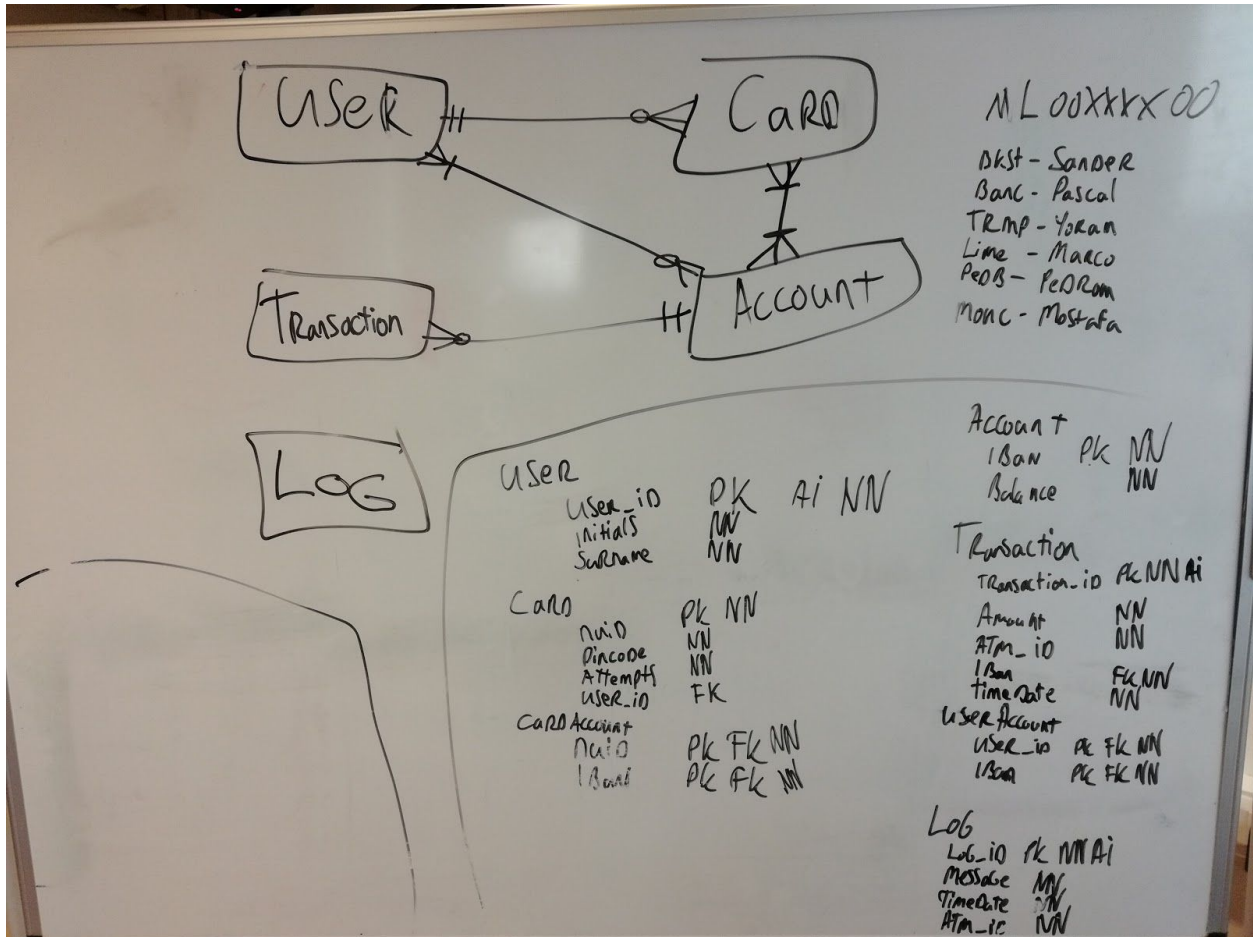 USER
CARD
TRansaction
Account
LOG
ML00XXXX00
BKST - SanDeR
Banc - Pascal
TRMP - YoRan
Lime - MaRco
PeDB - PeDRam
Monc - Mostafa
USER
USER_iD PK Ai NN
initials NN
SuRname NN
CaRD PK NN
nuiD NN
Pincode NN
Attempts
USER_iD FK
CaRDAccount
nuiD PK FK NN
IBan PK FK NN
Account
IBan PK NN
Balance NN
TRansaction
TRansaction_iD PK NN Ai
Amount NN
ATm_iD NN
IBan FK NN
timeDate NN
USERAccount
USER_iD PK FK NN
IBan PK FK NN
LOG
LoG_iD PK NN Ai
MessaGe NN
TimeDate NN
ATm_iD NN